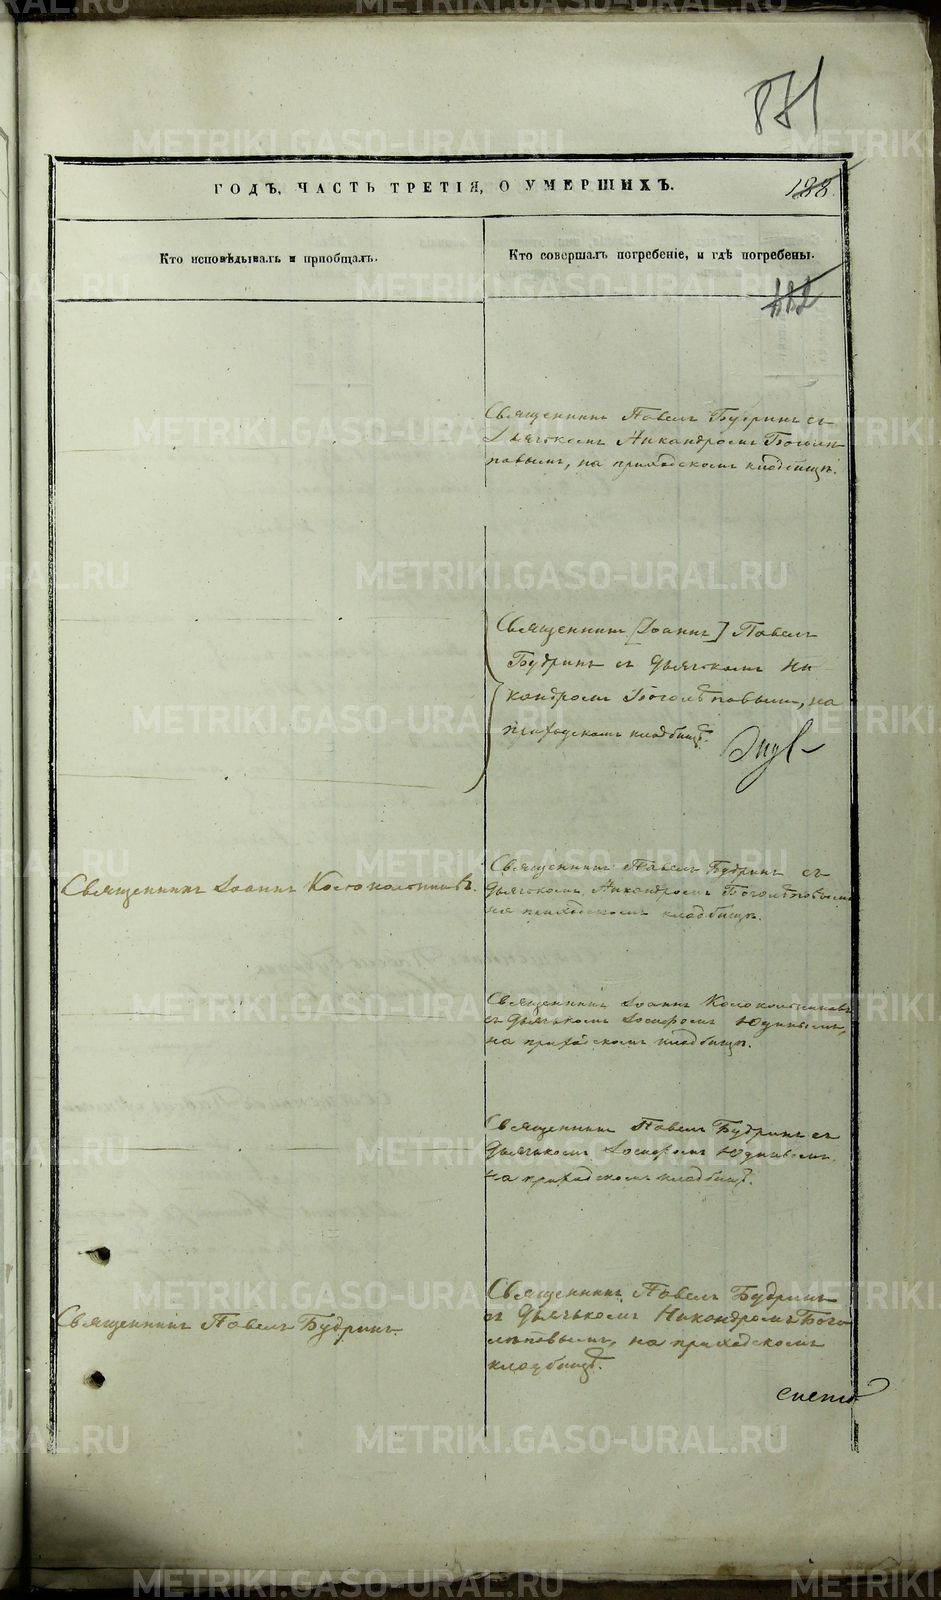 871
ГОДЪ, ЧАСТЬ ТРЕТІЯ, О УМЕРШИХЪ.
188.
Кто исповѣдывалъ и пріобщалъ.
Кто совершалъ погребеніе, и гдѣ погребены.
Священникъ Павелъ Будринъ съ
Дьячкомъ Никандромъ Боголѣ-
повымъ, на приходскомъ кладбищѣ.
Священникъ [Іоаннъ] Павелъ
Будринъ съ дьячкомъ Ни-
кандромъ Боголѣповымъ, на
приходскомъ кладбищѣ.
Священникъ Іоаннъ Колокольниковъ.
Священникъ Павелъ Будринъ съ
дьячкомъ Никандромъ Боголѣповымъ
на приходскомъ кладбищѣ.
Священникъ Іоаннъ Колокольниковъ
съ дьячькомъ Іосифомъ Юдинымъ,
на приходскомъ кладбищѣ.
Священникъ Павелъ Будринъ съ
дьячькомъ Іосифомъ Юдинымъ
на приходскомъ кладбищѣ.
Священникъ Павелъ Будринъ.
Священникъ Павелъ Будринъ
съ дьячькомъ Никандромъ Бого-
лѣповымъ, на приходскомъ
кладбищѣ.
METRIKI.GASO-URAL.RU